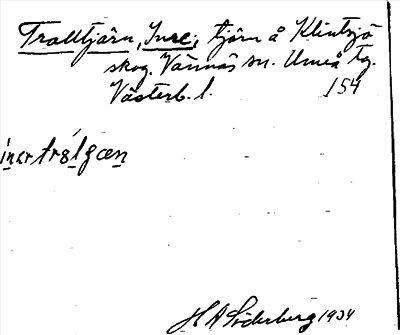 Tralltjärn, Inre, tjärn å Klintsjö
skog. Vännäs sn. Umeå tg.
Västerb. l. 154
ı́nar trálgæn
H A Söderberg 1934